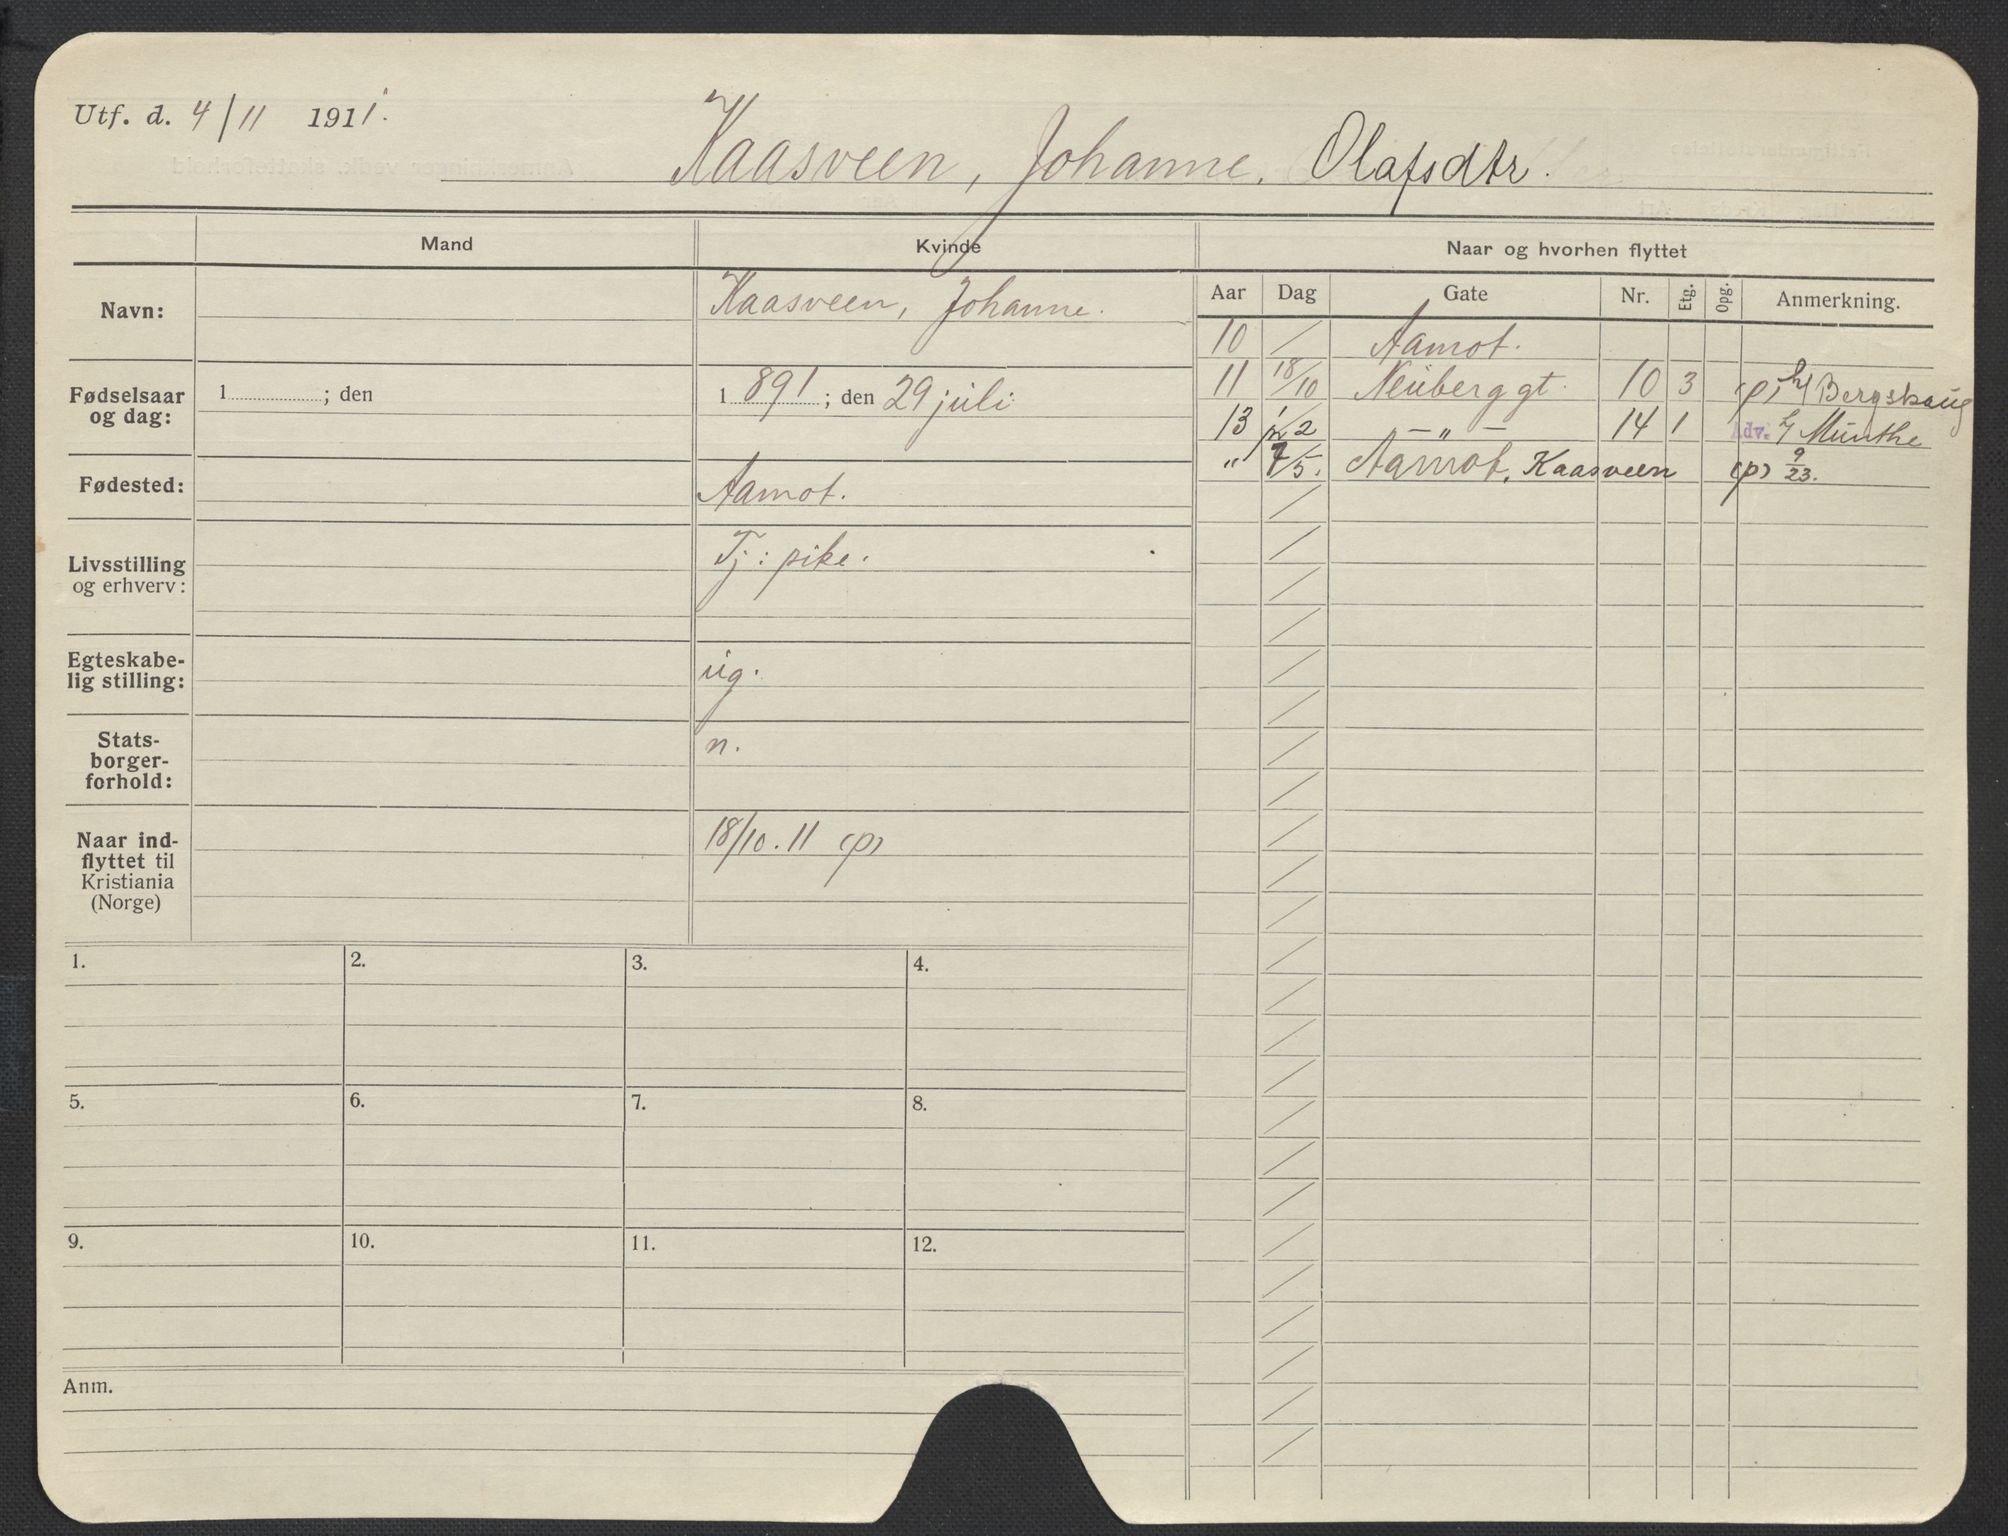 Utf. d. 4/11 1911.
Kaasveen, Johanne. Olafsdtr.
Mand
Kvinde
Naar og hvorhen flyttet
Navn:
Kaasveen, Johanne.
Aar Dag Gate Nr. Etg. Opg. Anmerkning.
10 / Aamot.
11 18/10 Neüberg gt. 10 3 (p), h/ Bergskaüg
13 1/2 — „ — 14 1 Adv. h/ Münthe
„ 7/5. Aamot, Kaasveen (p) 9/23.
Fødselsaar
og dag:
1 ; den
1 891 ; den 29 juli
Fødested:
Aamot.
Livsstilling
og erhverv:
Tj: pike.
Egteskabe-
lig stilling:
üg.
Stats-
borger-
forhold:
n.
Naar ind-
flyttet til
Kristiania
(Norge)
18/10. 11 (p)
1. 2. 3. 4.
5. 6. 7. 8.
9. 10. 11. 12.
Anm.